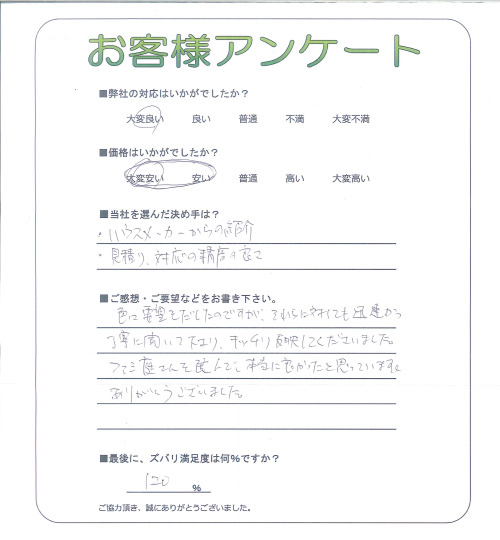 お客様アンケート
■弊社の対応はいかがでしたか？
大変良い 良い 普通 不満 大変不満
■価格はいかがでしたか？
大変安い 安い 普通 高い 大変高い
■当社を選んだ決め手は？
・ハウスメーカーからの紹介
・見積り、対応の精度
■ご感想・ご要望などをお書き下さい。
色々要望をだしたのですが、それらに対しても迅速かつ
丁寧に聞いて下さり、キッチリ反映してくださいました。
さんを選んで、本当に良かったと思っています。
ありがとうございました。
■最後に、ズバリ満足度は何％ですか？
120 ％
ご協力頂き、誠にありがとうございました。